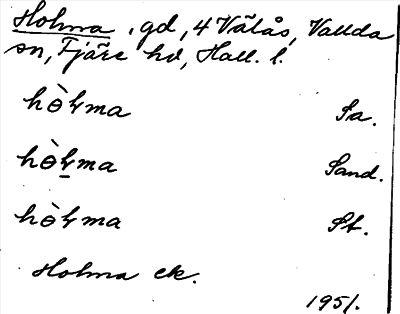 Holma, gd, 4 Våtås, Vallda
sn, Fjäre hd, Hall. l.
hò̵ɫma Sa.
hò̵ɫma Sand.
hò̵ɫma St.
Holma ek.
1951.